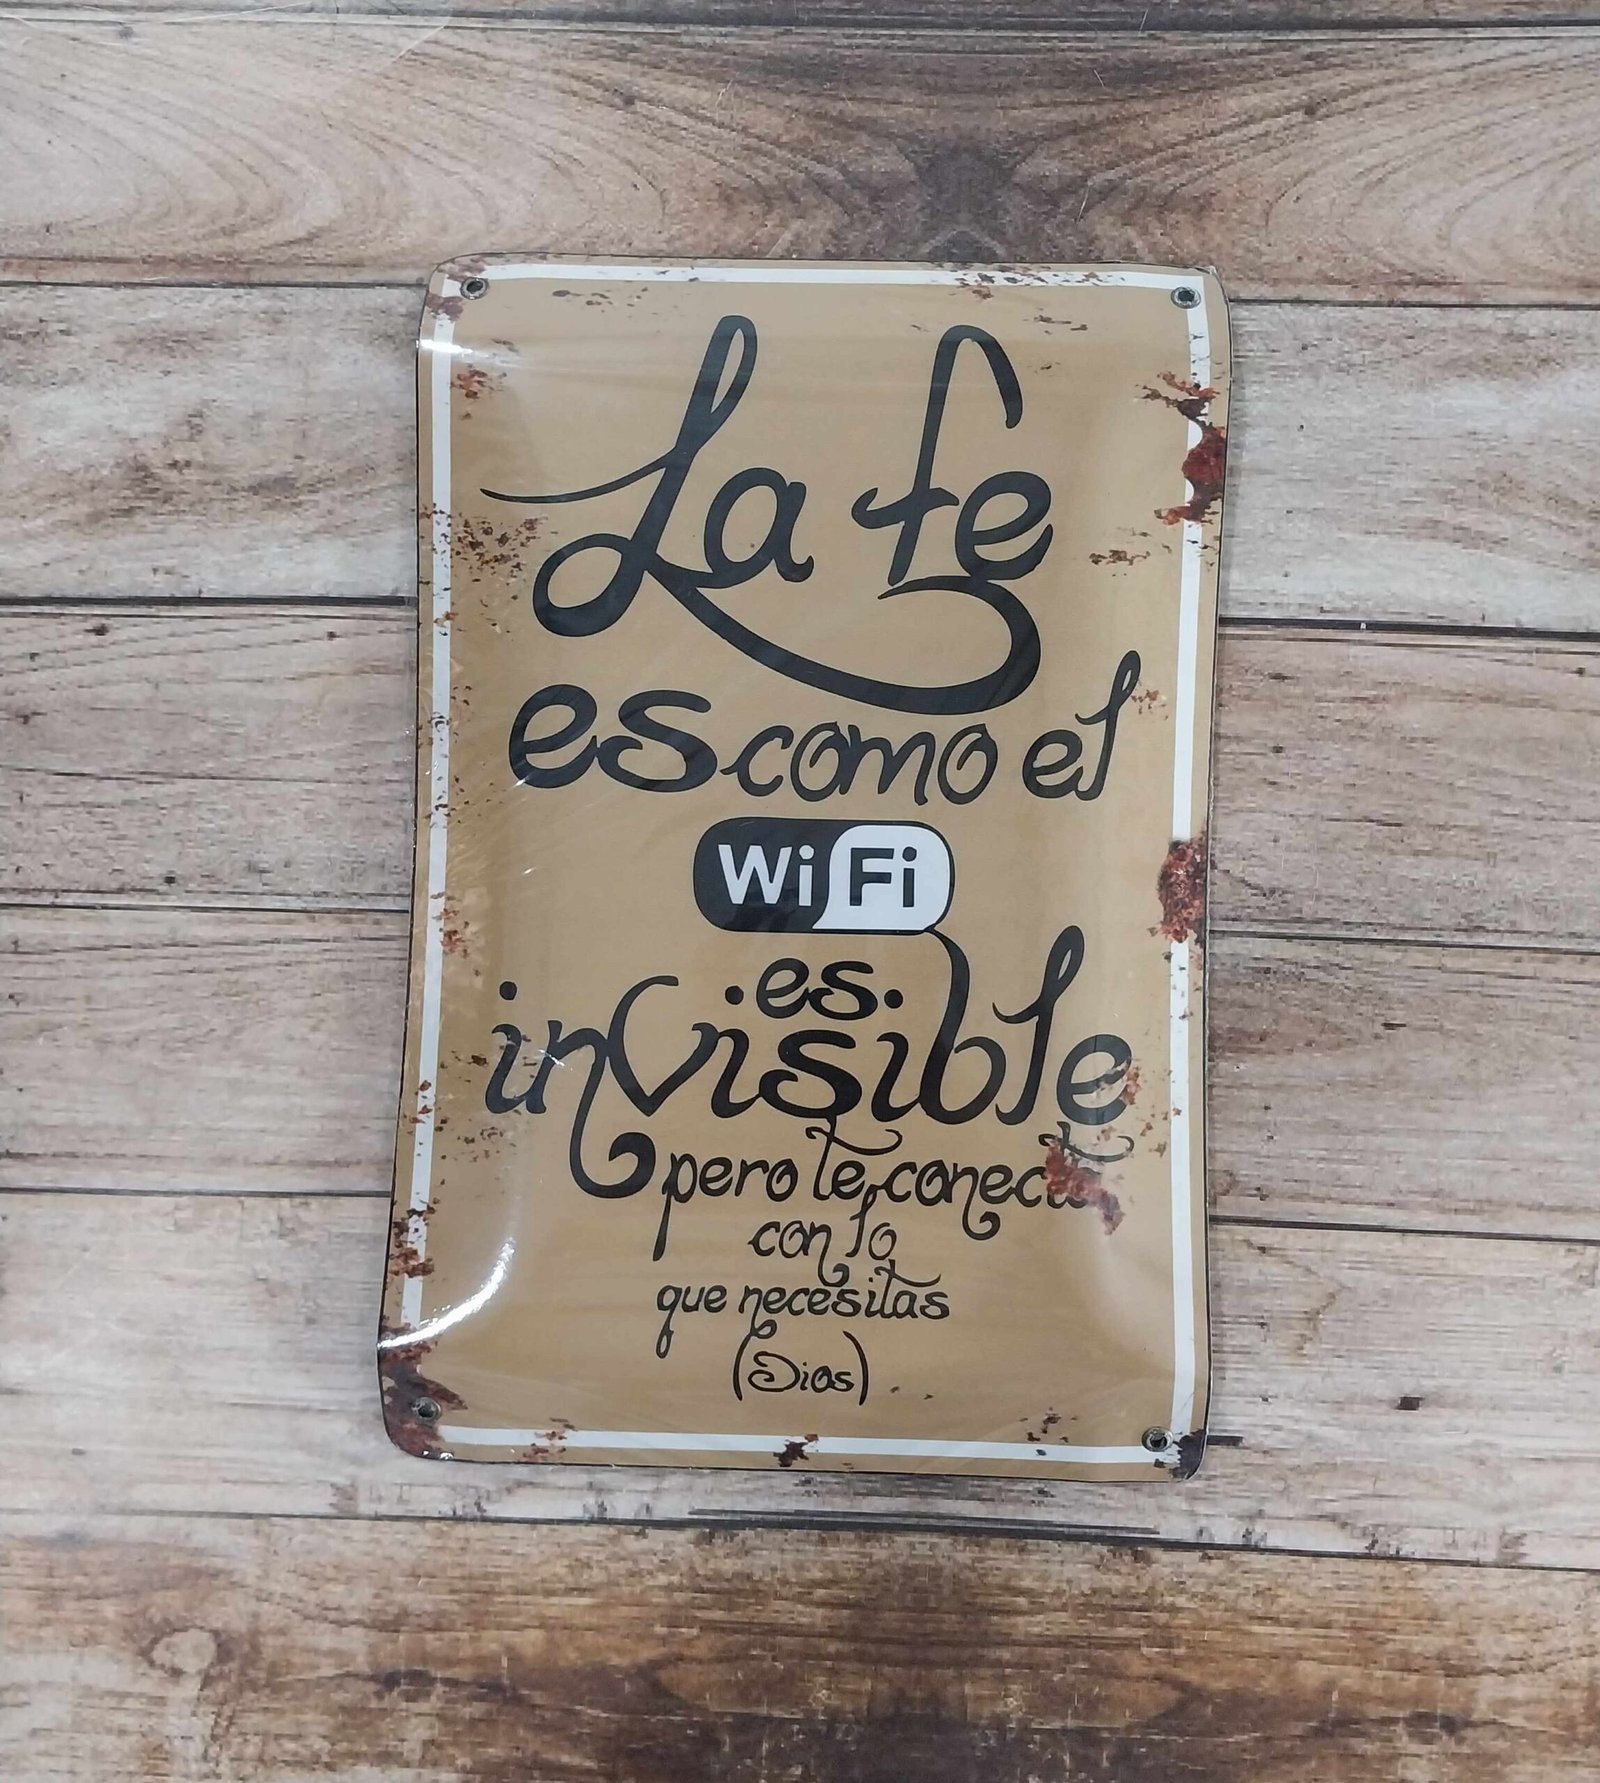 La fe
es como el
WiFi
.es.
invisible
pero te conecta
con lo
que necesitas
(Dios)